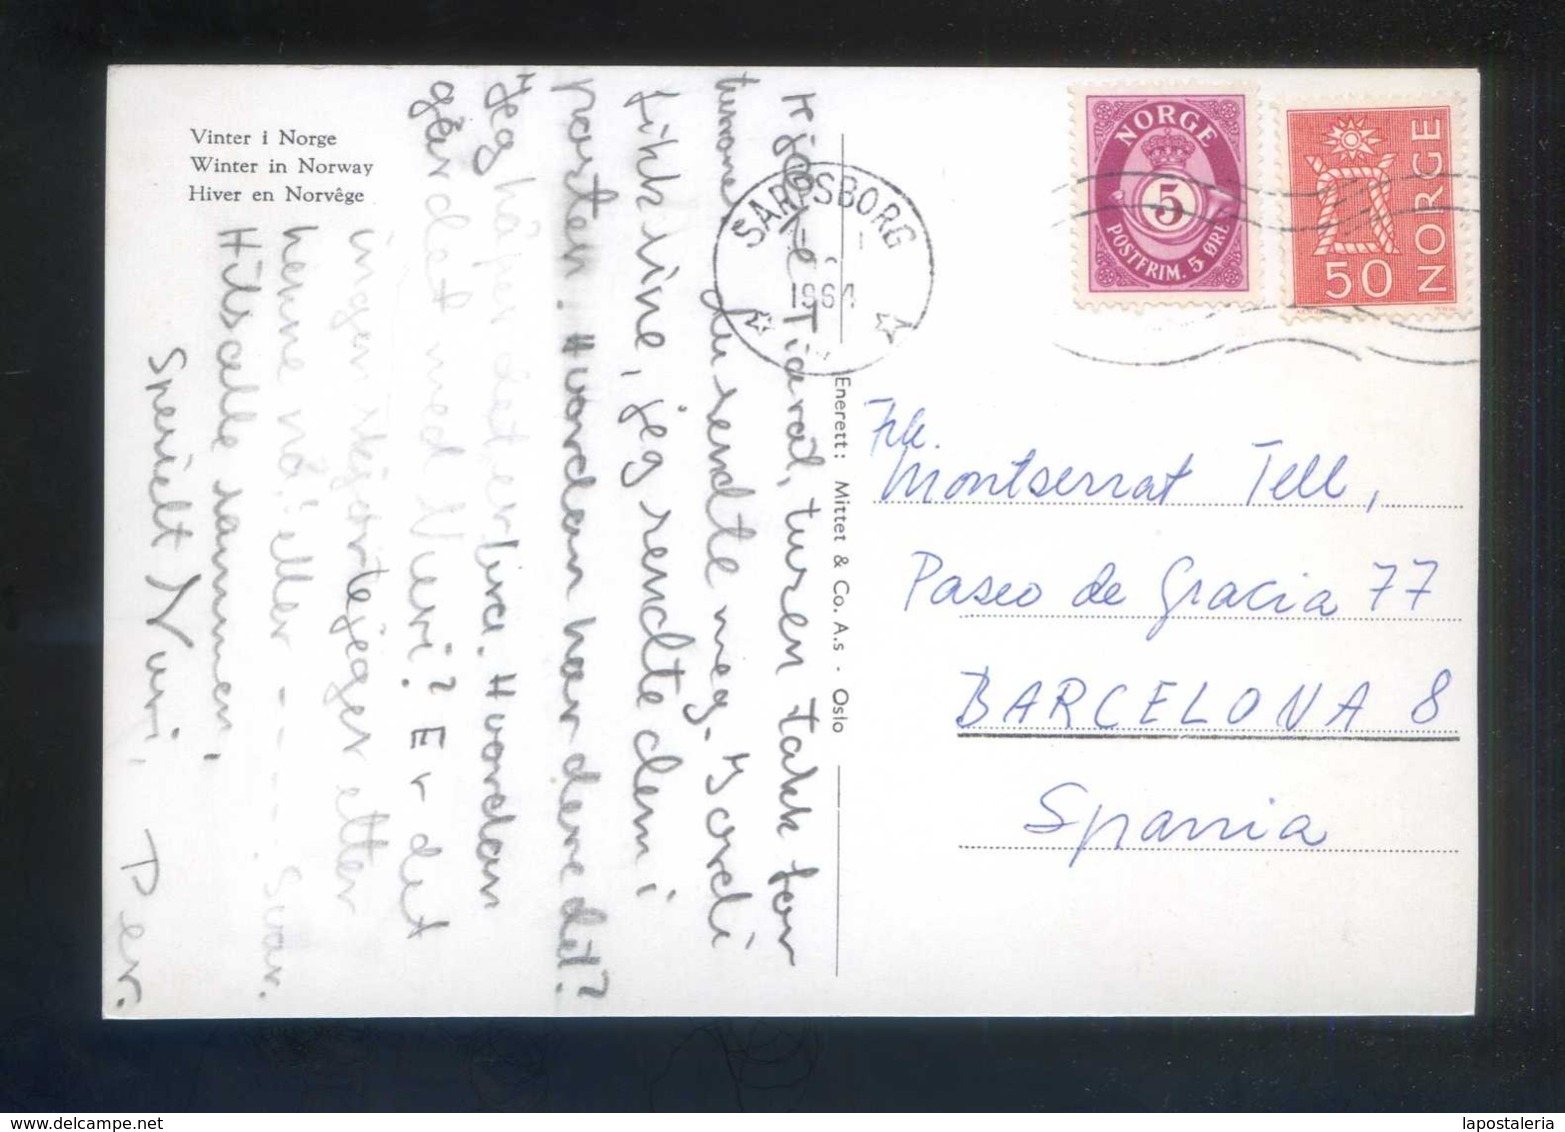 Vinter i Norge
Winter in Norway
Hiver en Norvège
Kjære Tiarad, tusen takk for
du sendte meg. Jordi
fikk sine, jeg sendte dem i
posten. Hvordan har dere det?
Jeg håper det er bra. Hvordan
går det med Nuri? Er det
ingen skjørtejeger etter
henne nå! eller ----- Svar.
Hils alle sammen,
Spesielt Nuri,
Per.
SARPSBORG
196
Enerett: Mittet & Co. A.s - Oslo
NORGE
5
POSTFRIM. 5 ØRE
NORGE
50
Frk.
Montserrat Tell,
Paseo de Gracia 77
BARCELONA 8
Spania
www.delcampe.net
lapostaleria